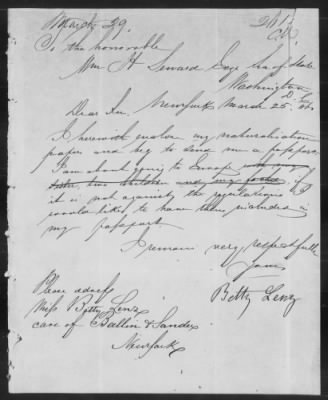 March 29.
To the honorable
Wm H. Seward Esq Sec of State
Washington
Dear Sir. Newyork March 25.
I herewith enclose my naturalisation
paper and beg to send me a passport.
I am about going to Europe with my
sister, two children if
it is not against the regulations I
would like to have them included in
my passport.
I remain very respectfully
Yours
Betty Lenz
Please adress
Miss Betty Lenz
care of Ballin & Sander
Newyork